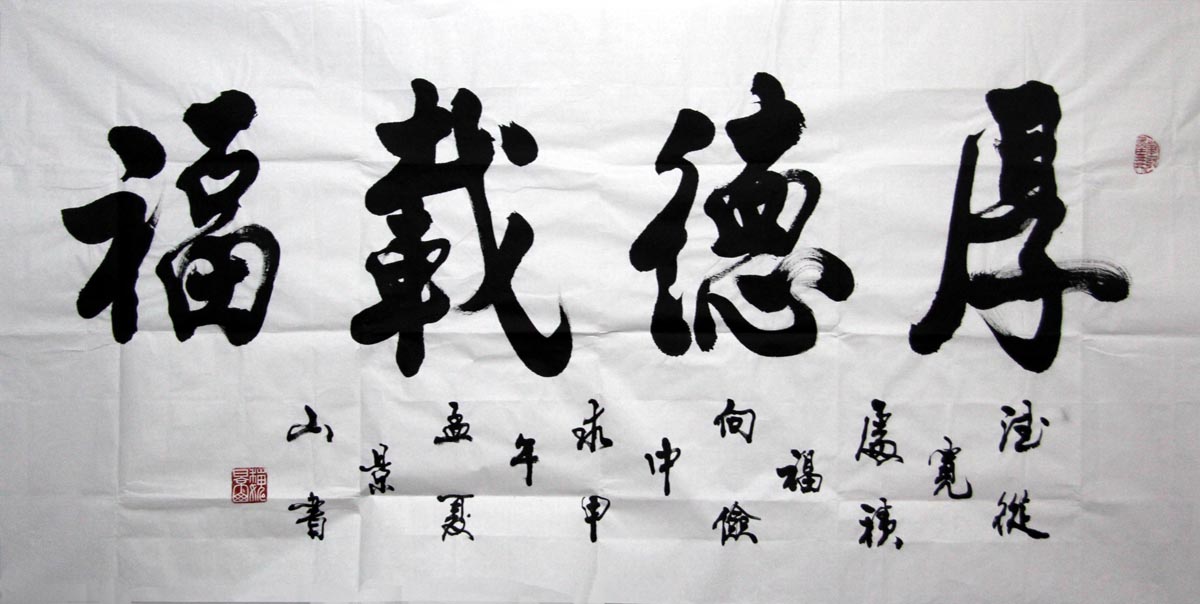 厚德載福
德從
寬
處積
福
向儉
中
求甲
午
孟夏
景
山書